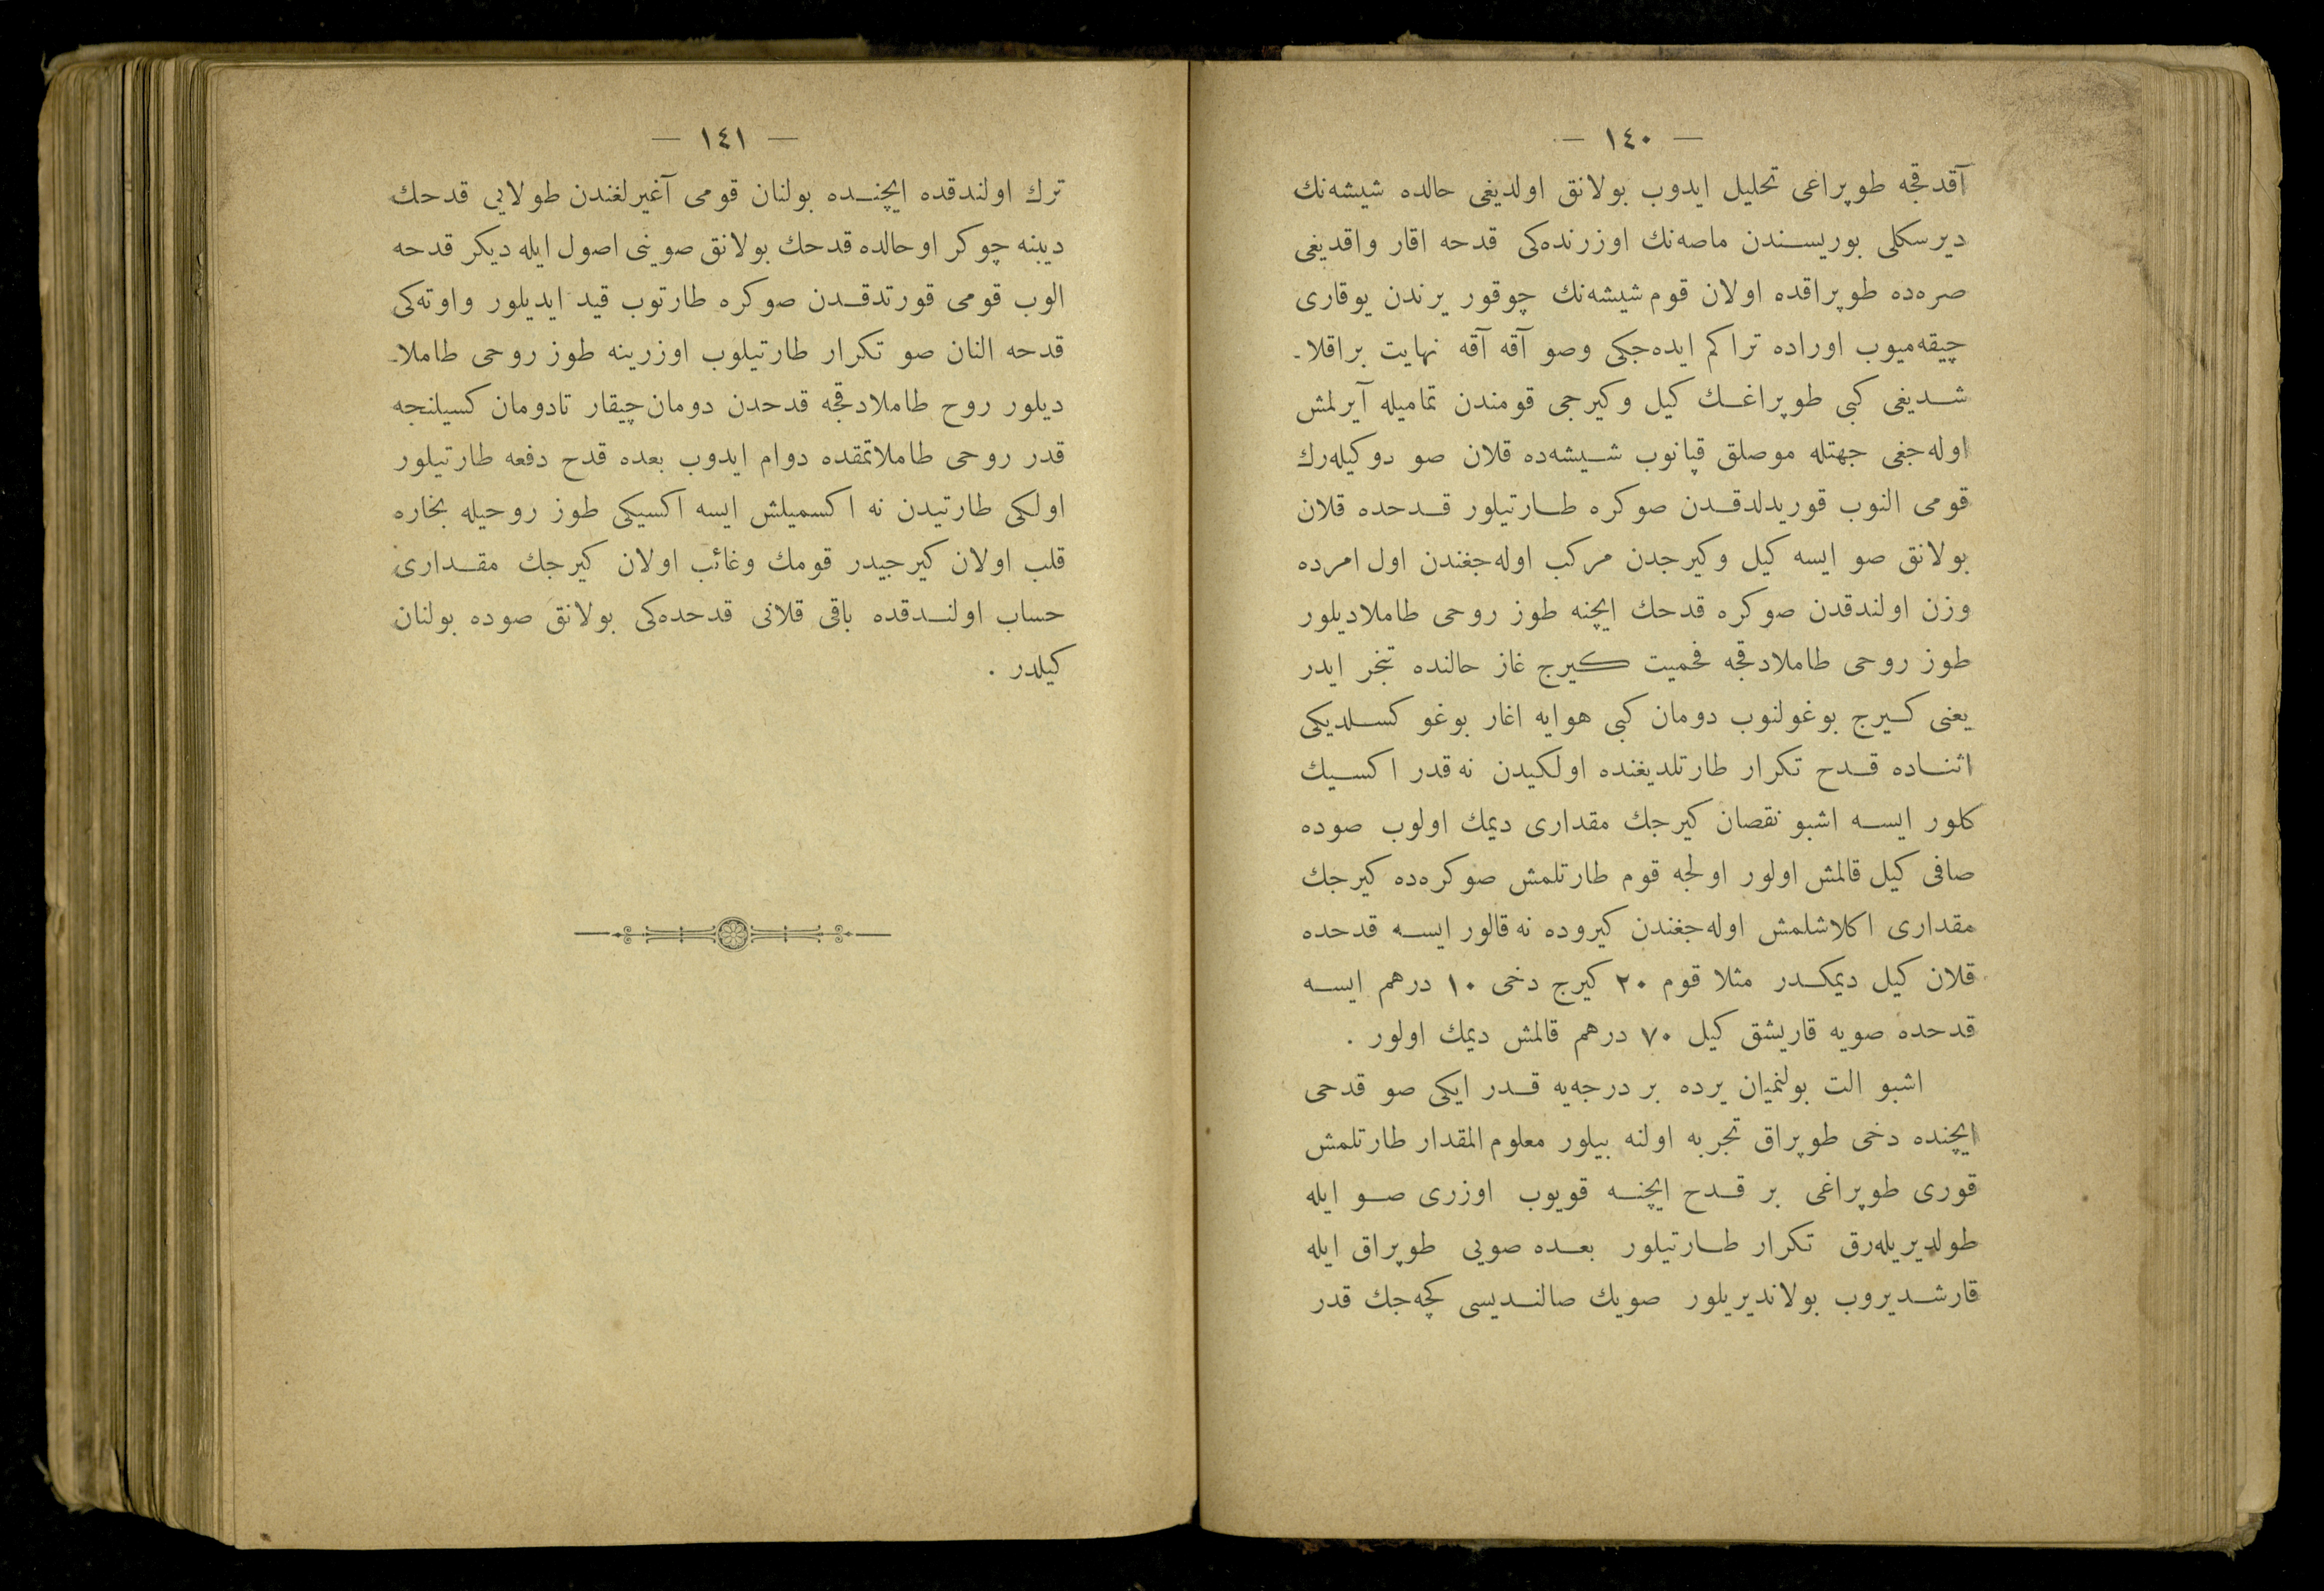 — ١٤٠ —
آقدقجه طوپراغی تحلیل ایدوب بولانق اولدیغی حالده شیشه‌نك
دیرسكلی بوریسندن ماصه‌نك اوزرنده‌كی قدحه اقار واقدیغی
صره‌ده طوپراقده اولان قوم شیشه‌نك چوقور یرندن یوقاری
چیقه‌میوب اوراده تراكم ایده‌جكی وصو آقه آقه نهایت براقلا-
شدیغی كبی طوپراغك كیل وكیرجی قومندن تمامیله آیرلمش
اوله‌جغی جهتله موصلق قپانوب شیشه‌ده قلان صو دوكیله‌رك
قومی النوب قوریدلدقدن صوكره طارتیلور قدحده قلان
بولانق صو ایسه كیل وكیرجدن مركب اوله‌جغندن اول امرده
وزن اولندقدن صوكره قدحك ایچنه طوز روحی طاملادیلور
طوز روحی طاملادقجه فحمیت كیرج غاز حالنده تبخر ایدر
یعنی كیرج بوغولنوب دومان كبی هوایه اغار بوغو كسلدیكی
اثناده قدح تكرار طارتلدیغنده اولكیدن نه قدر اكسیك
كلور ایسه اشبو نقصان كیرجك مقداری دیمك اولوب صوده
صافی كیل قالمش اولور اولجه قوم طارتلمش صوكره‌ده كیرجك
مقداری اكلاشلمش اوله‌جغندن كیروده نه قالور ایسه قدحده
قلان كیل دیمكدر مثلا قوم ٢٠ كیرج دخی ١٠ درهم ایسه
قدحده صویه قاریشق كیل ٧٠ درهم قالمش دیمك اولور .
اشبو الت بولنمیان یرده بر درجه‌یه قدر ایكی صو قدحی
ایچنده دخی طوپراق تجربه اولنه بیلور معلوم المقدار طارتلمش
قوری طوپراغی بر قدح ایچنه قویوب اوزری صو ایله
طولدیریله‌رق تكرار طارتیلور بعده صویی طوپراق ایله
قارشدیروب بولاندیریلور صویك صالندیسی كچه‌جك قدر
— ١٤١ —
ترك اولندقده ایچنده بولنان قومی آغیرلغندن طولایی قدحك
دیبنه چوكر اوحالده قدحك بولانق صوینی اصول ایله دیكر قدحه
الوب قومی قورتدقدن صوكره طارتوب قید ایدیلور واوته‌كی
قدحه النان صو تكرار طارتیلوب اوزرینه طوز روحی طاملا-
دیلور روح طاملادقجه قدحدن دومان چیقار تادومان كسیلنجه
قدر روحی طاملاتمقده دوام ایدوب بعده قدح دفعه طارتیلور
اولكی طارتیدن نه اكسمیلش ایسه اكسیكی طوز روحیله بخاره
قلب اولان كیرجیدر قومك وغائب اولان كیرجك مقداری
حساب اولندقده باقی قلانی قدحده‌كی بولانق صوده بولنان
كیلدر .